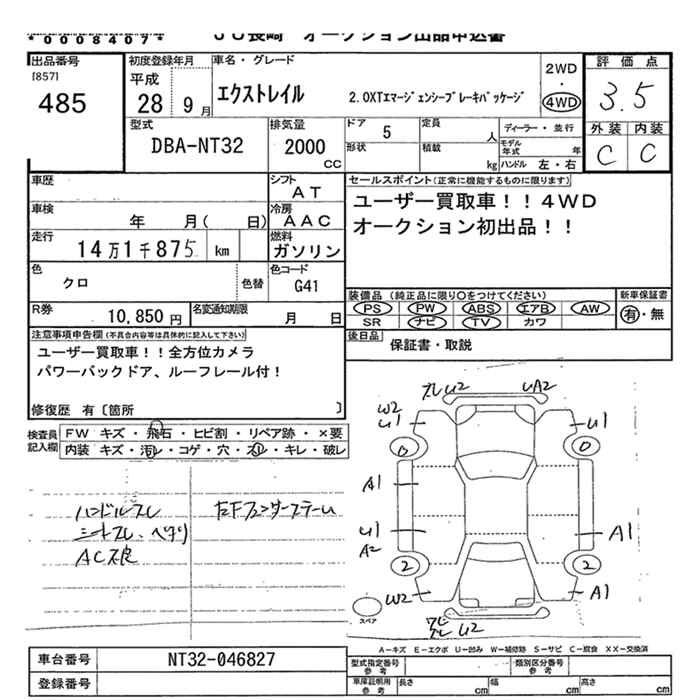 *0008407* JU長崎 オークション出品申込書
出品番号
[857]
485
初度登録年月
平成
28 9月
車名・グレード
エクストレイル 2.0XTエマージェンシーブレーキパッケージ
2WD
4WD
評価点
3.5
外装 内装
C C
型式
DBA-NT32
排気量
2000
CC
ドア 5
形状
定員 人
積載 kg
ディーラー・並行
モデル年式 年
ハンドル 左・右
車歴
シフト
AT
車検 年 月( 日)
冷房
AAC
走行
14万1千875 km
燃料
ガソリン
色
クロ
色替
色コード
G41
R券
10,850円
名変通知期限
月 日
セールスポイント(正常に機能するものに限ります)
ユーザー買取車!!4WD
オークション初出品!!
装備品 (純正品に限り○をつけてください)
PS PW ABS エアB AW
SR ナビ TV カワ
新車保証書
有・無
後日品
保証書・取説
注意事項申告欄(不具合内容等は具体的に記入して下さい)
ユーザー買取車!!全方位カメラ
パワーバックドア、ルーフレール付!
修復歴 有〔箇所 〕
検査員記入欄
FW キズ・飛石・ヒビ割・リペア跡・×要
内装 キズ・汚レ・コゲ・穴・スレ・キレ・破レ
ハンドルスレ
シートスレ、ヘタリ
AC不良
左FフェンダーステーU
スレU2 UA2
W2
U1 U1
0 0
A1
U1 A1
A2
2 2
W2 A1
U2
スペア
A-キズ E-エクボ U-凹み W-補修跡 S-サビ C-腐食 XX-交換済
車台番号 NT32-046827
登録番号
型式指定番号
参考
類別区分番号
参考
車庫証明用
参考
長さ cm 幅 cm 高さ cm